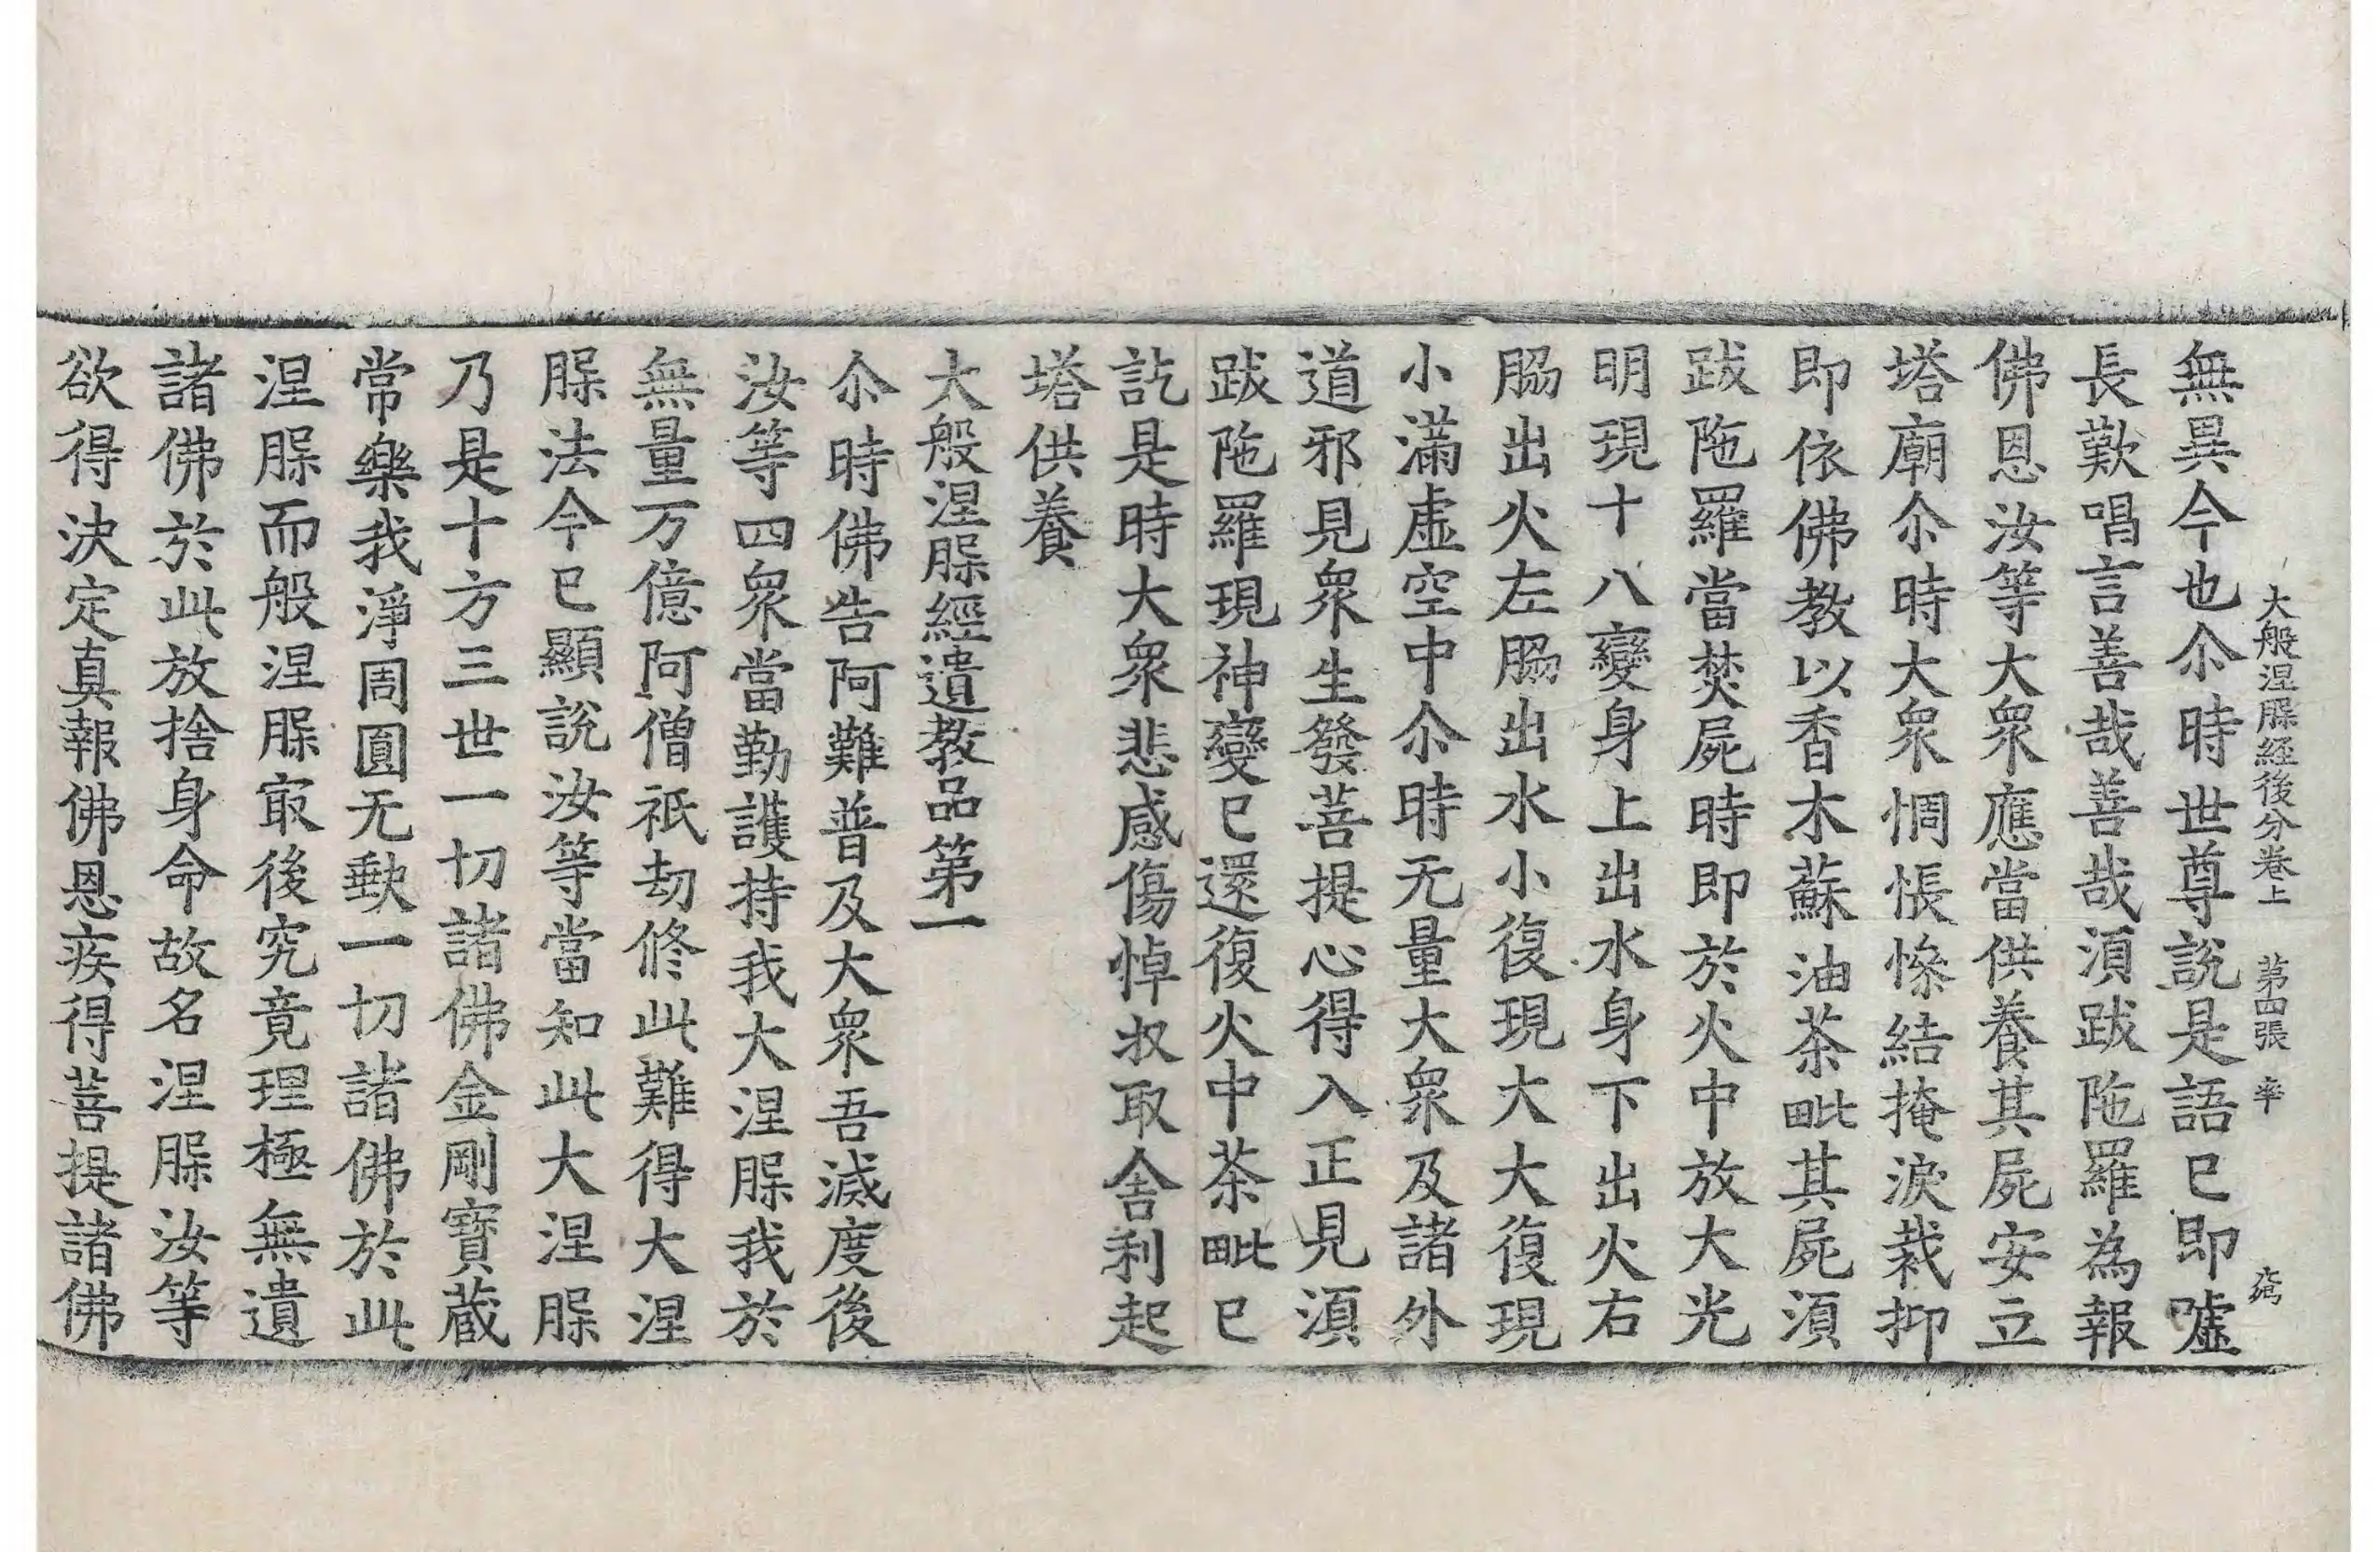 大般涅槃經後分卷上 第四張 率
無異今也尒時世尊說是語已即噓
長歎唱言善哉善哉湏跋陁羅為報
佛恩汝等大衆應當供養其屍安立
塔廟尒時大衆惆悵慘結掩淚裁抑
即依佛教以香木蘇油茶毗其屍湏
跋陁羅當焚屍時即於火中放大光
明現十八變身上出水身下出火右
脇出火左脇出水小復現大大復現
小滿虛空中尒時无量大衆及諸外
道邪見衆生發菩提心得入正見湏
跋陁羅現神變已還復火中茶毗已
訖是時大衆悲感傷悼収取舍利起
塔供養
大般涅槃經遺教品第一
尒時佛告阿難普及大衆吾滅度後
汝等四衆當勤護持我大涅槃我於
無量万億阿僧祇劫修此難得大涅
槃法今已顯說汝等當知此大涅槃
乃是十方三世一切諸佛金剛寶蔵
常樂我淨周圓无缺一切諸佛於此
涅槃而般涅槃㝡後究竟理極無遺
諸佛於此放捨身命故名涅槃汝等
欲得決定真報佛恩疾得菩提諸佛